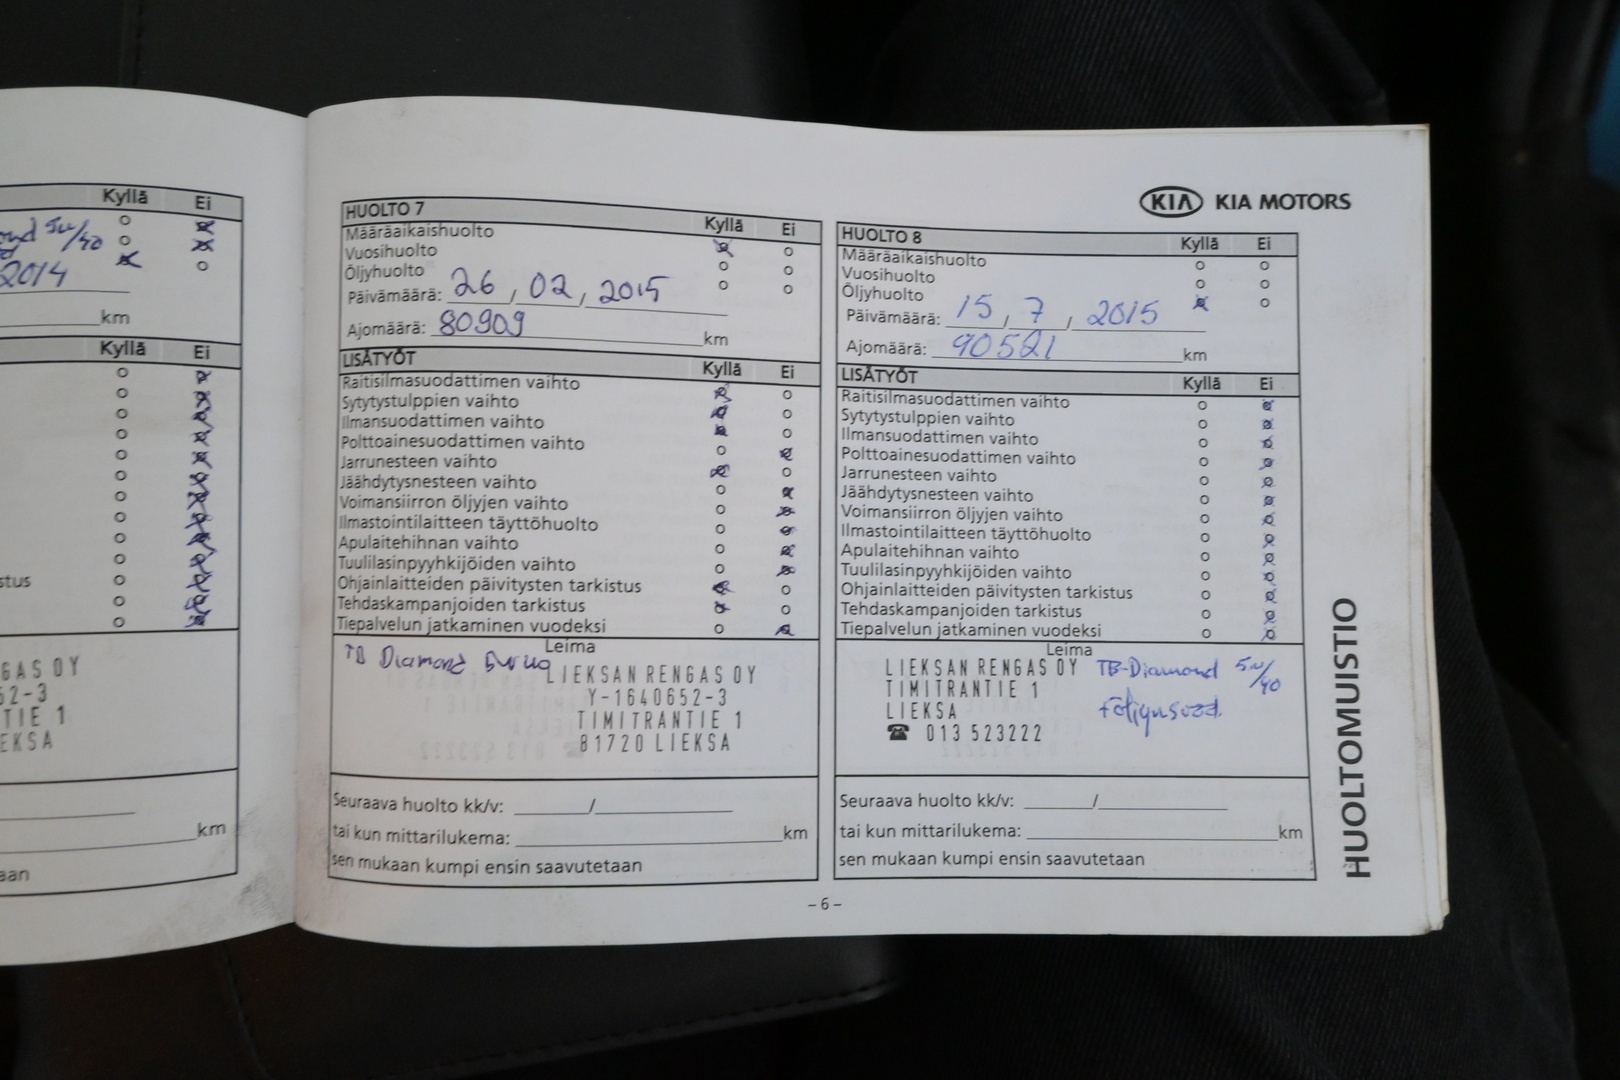 Kyllä Ei
5w/40
2014
km
Kyllä Ei
stus
GAS OY
52-3
TIE 1
EKSA
km
aan
KIA KIA MOTORS
HUOLTO 7
Kyllä Ei
Määräaikaishuolto
Vuosihuolto
Öljyhuolto
Päivämäärä: 26, 02, 2015
Ajomäärä: 80909 km
LISÄTYÖT Kyllä Ei
Raitisilmasuodattimen vaihto
Sytytystulppien vaihto
Ilmansuodattimen vaihto
Polttoainesuodattimen vaihto
Jarrunesteen vaihto
Jäähdytysnesteen vaihto
Voimansiirron öljyjen vaihto
Ilmastointilaitteen täyttöhuolto
Apulaitehihnan vaihto
Tuulilasinpyyhkijöiden vaihto
Ohjainlaitteiden päivitysten tarkistus
Tehdaskampanjoiden tarkistus
Tiepalvelun jatkaminen vuodeksi
Leima
TB Diamond
LIEKSAN RENGAS OY
Y-1640652-3
TIMITRANTIE 1
81720 LIEKSA
Seuraava huolto kk/v: /
tai kun mittarilukema: km
sen mukaan kumpi ensin saavutetaan
HUOLTO 8
Kyllä Ei
Määräaikaishuolto
Vuosihuolto
Öljyhuolto
Päivämäärä: 15, 7, 2015
Ajomäärä: 90521 km
LISÄTYÖT Kyllä Ei
Raitisilmasuodattimen vaihto
Sytytystulppien vaihto
Ilmansuodattimen vaihto
Polttoainesuodattimen vaihto
Jarrunesteen vaihto
Jäähdytysnesteen vaihto
Voimansiirron öljyjen vaihto
Ilmastointilaitteen täyttöhuolto
Apulaitehihnan vaihto
Tuulilasinpyyhkijöiden vaihto
Ohjainlaitteiden päivitysten tarkistus
Tehdaskampanjoiden tarkistus
Tiepalvelun jatkaminen vuodeksi
Leima
LIEKSAN RENGAS OY TB-Diamond 5w/40
TIMITRANTIE 1
LIEKSA
☎ 013 523222
Seuraava huolto kk/v: /
tai kun mittarilukema: km
sen mukaan kumpi ensin saavutetaan
HUOLTOMUISTIO
– 6 –